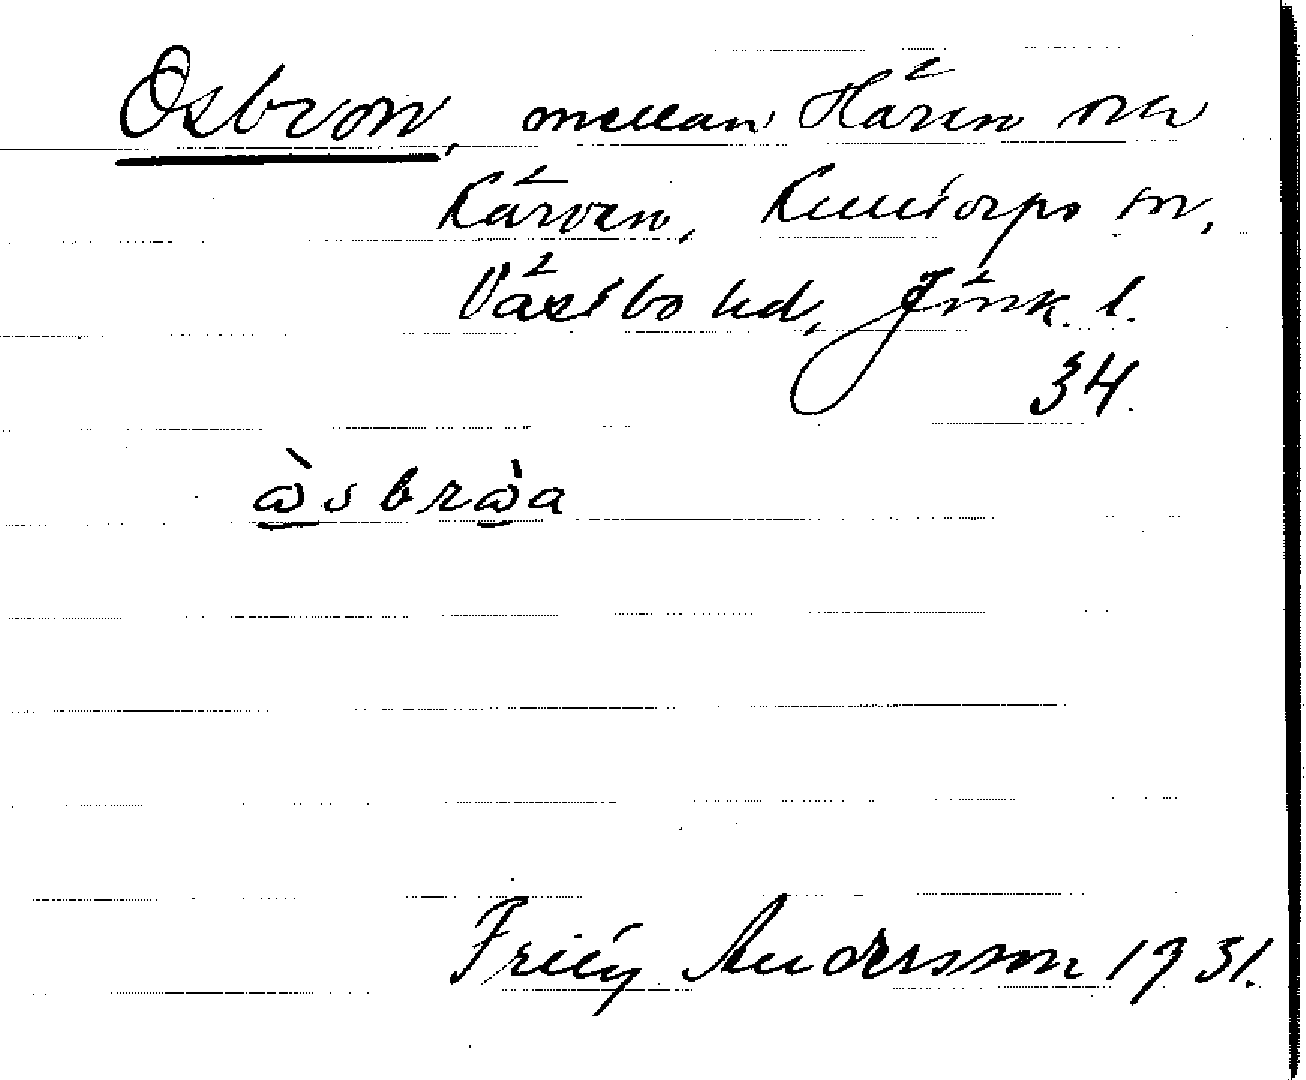 Osbron, mellan Hären och
Kärven, Kulltorps sn,
Västbo hd, Jönk. l.
34.
Fritz Andersson 1931.